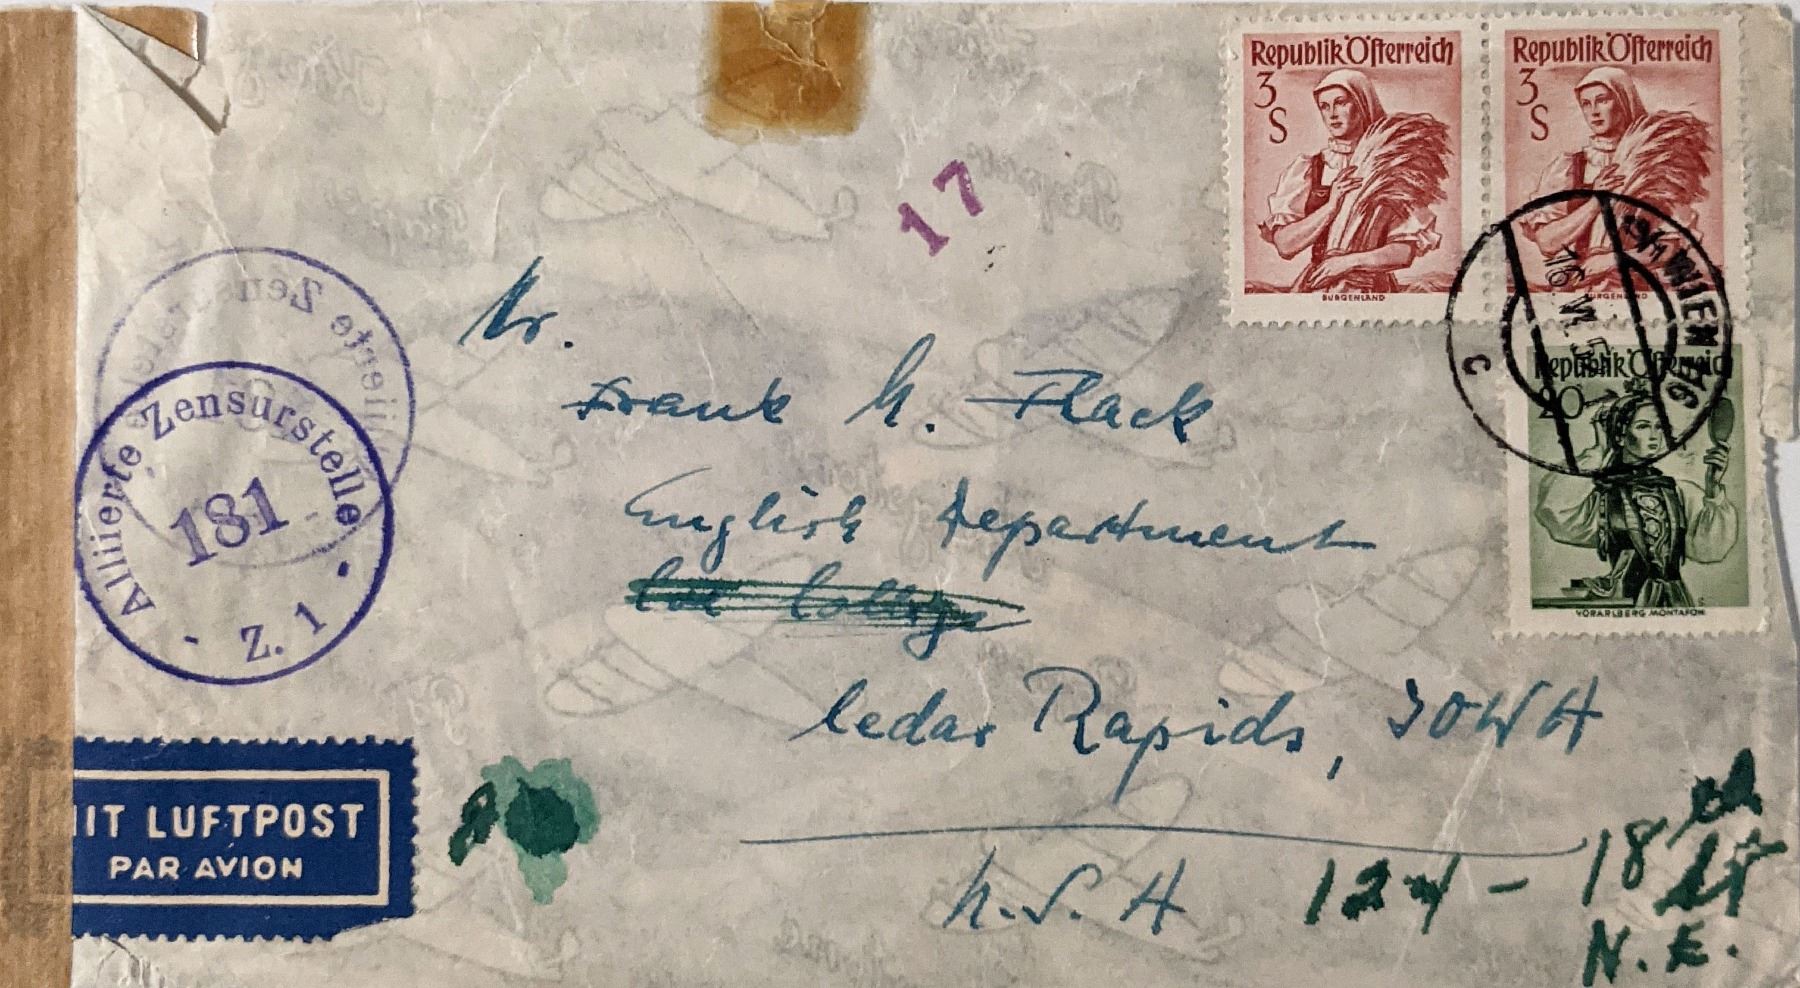 Republik Österreich
3
S
BURGENLAND
Republik Österreich
3
S
BURGENLAND
Republik Österreich
20
VORARLBERG MONTAFON
WIEN
16. VI. 5
C
17
Alliierte Zensurstelle
181
Z. 1
Mr.
Frank M. Flack
English Department
Coe College
Cedar Rapids, IOWA
U.S.A
124 - 18th St
N.E.
MIT LUFTPOST
PAR AVION